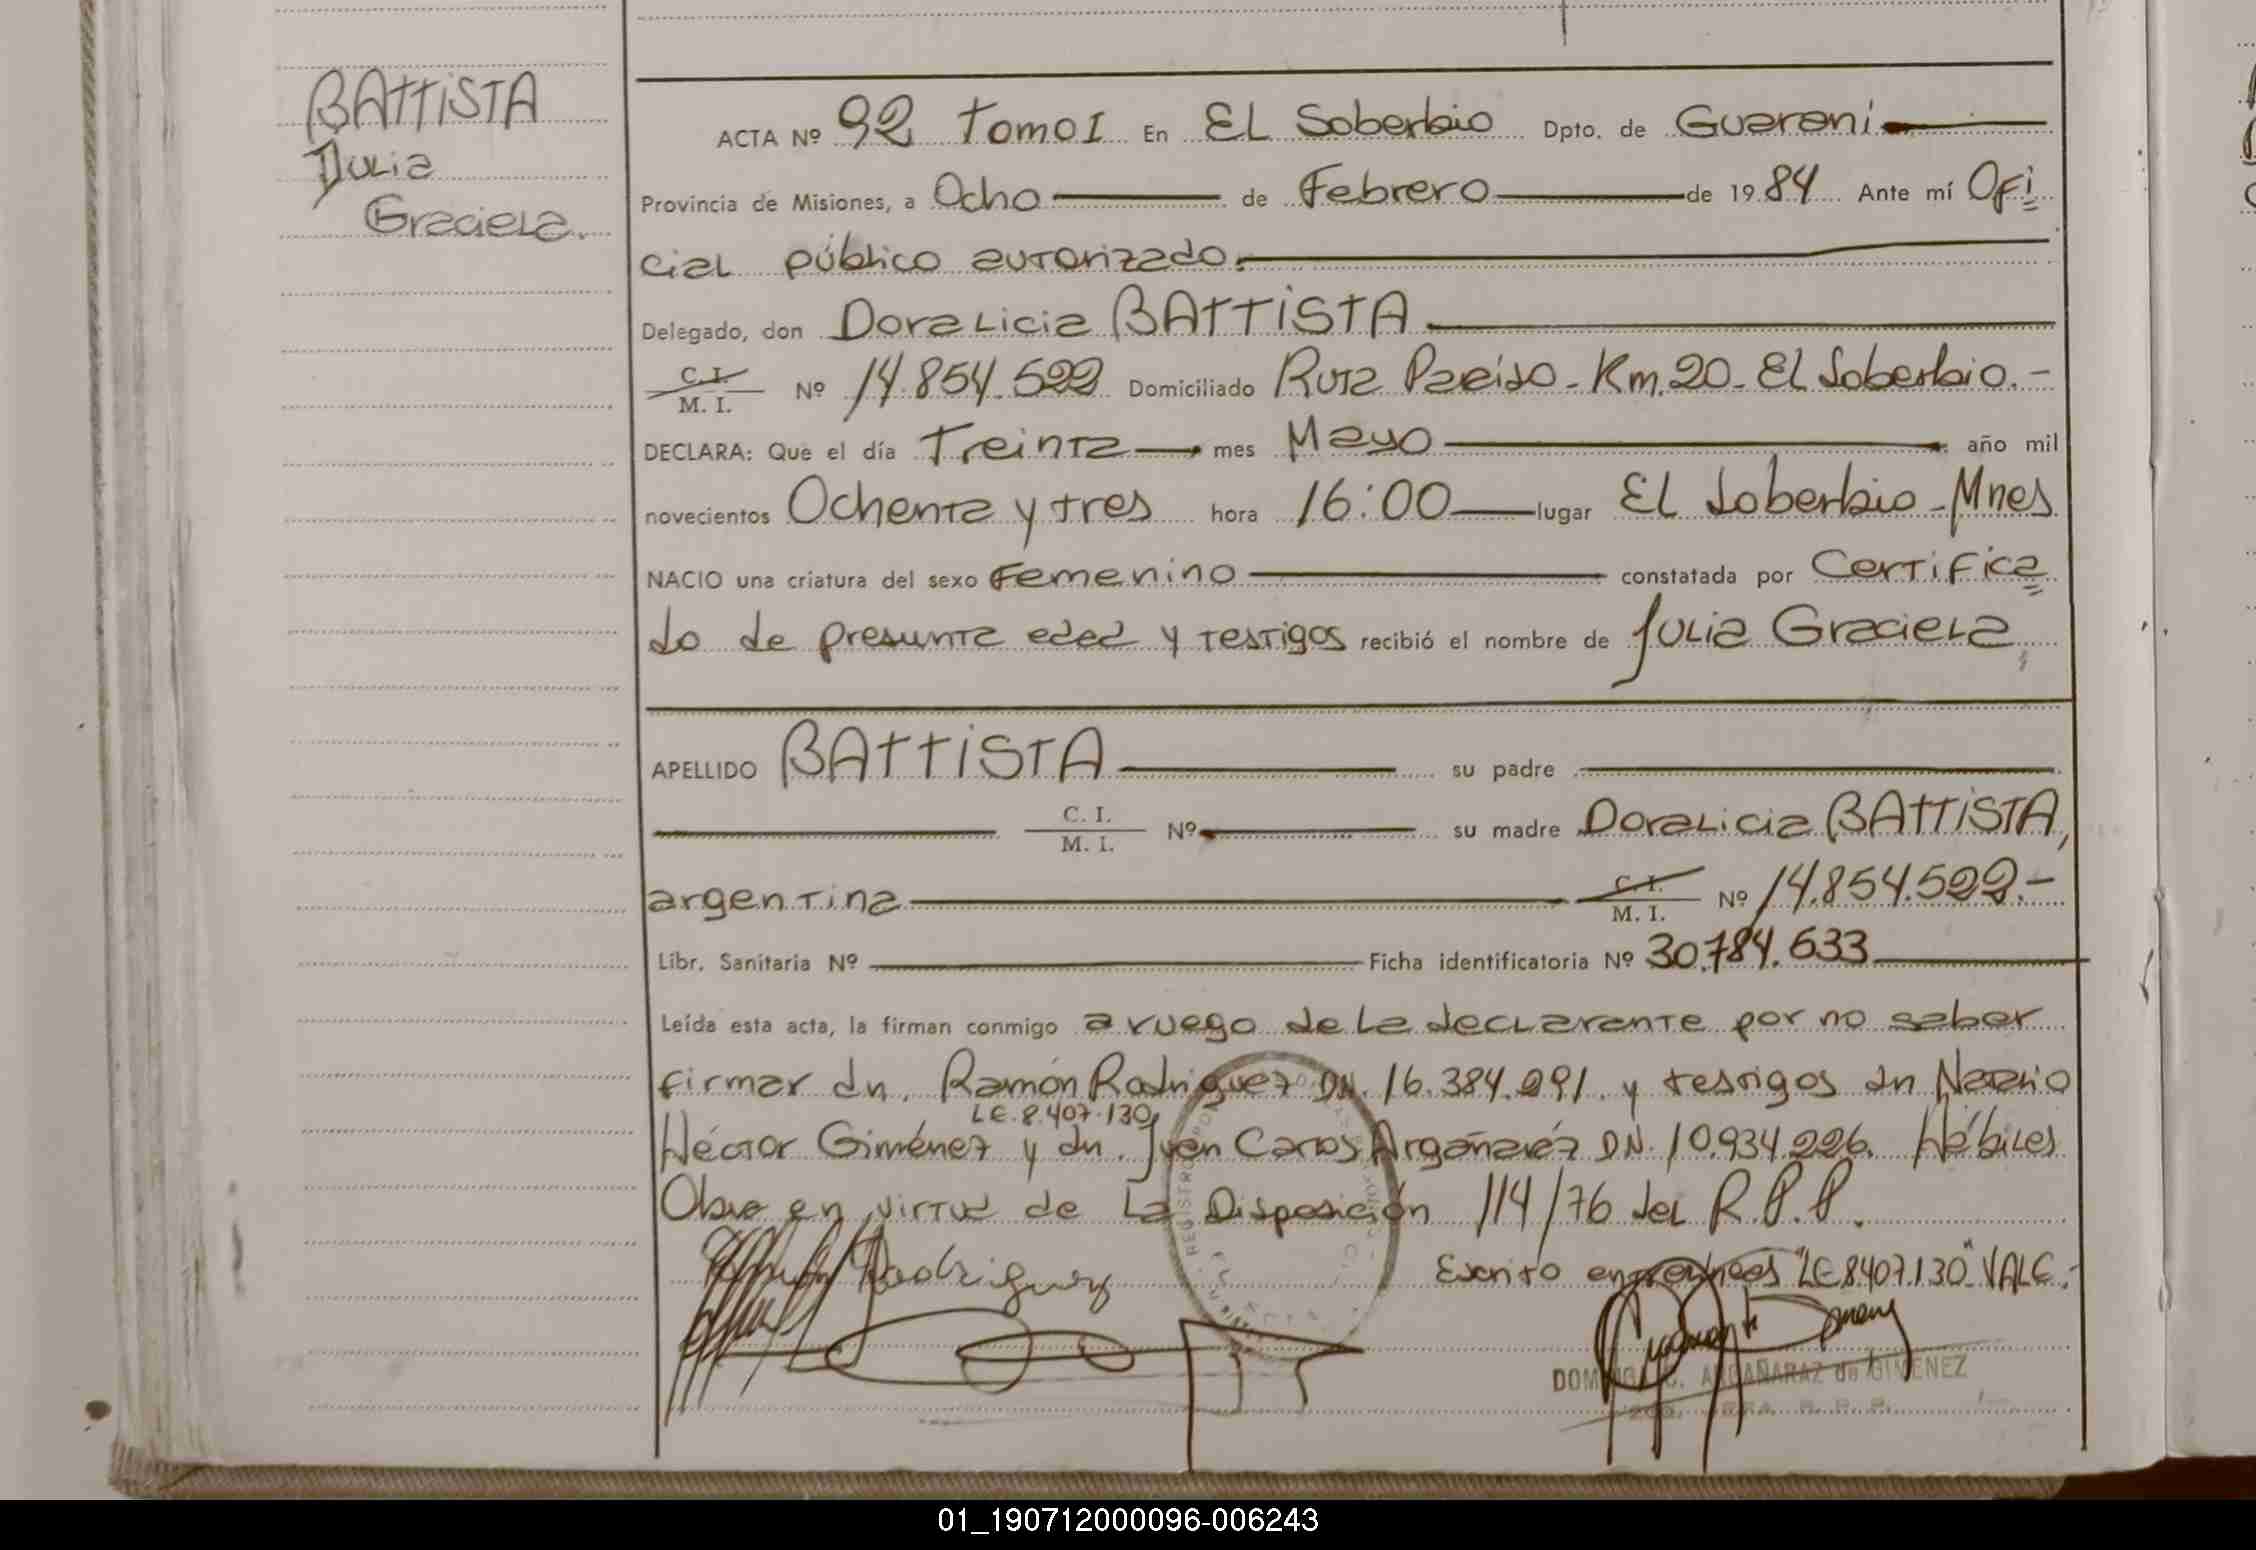 BATTISTA
Julia
Graciela.
ACTA Nº 92 Tomo I En El Soberbio Dpto. de Guarani
Provincia de Misiones, a Ocho de Febrero de 19 84 Ante mí Ofi
cial público autorizado.
Delegado, don Doralicia BATTISTA
C. I. / M. I. Nº 14.854.522 Domiciliado Ruta Paraíso - Km. 20 - El Soberbio. -
DECLARA: Que el día Treinta mes Mayo año mil
novecientos Ochenta y tres hora 16:00 lugar El Soberbio - Mnes
NACIO una criatura del sexo Femenino constatada por Certifica
do de presunta edad y testigos recibió el nombre de Julia Graciela,
APELLIDO BATTISTA su padre
C. I. / M. I. Nº su madre Doralicia BATTISTA,
argentina C. I. / M. I. Nº 14.854.522.-
Libr. Sanitaria Nº Ficha identificatoria Nº 30.784.633
Leída esta acta, la firman conmigo a ruego de la declarante por no saber
firmar dn. Ramón Rodriguez DN. 16.384.291. y testigos dn Nazario
LE. 8.407.130,
Héctor Giménez y dn. Juan Carlos Argañaráz DN. 10.934.226. Hábiles
Obro en virtud de la Disposición 114/76 del R.P.P.
Rodriguez
Escrito entrelíneas "LE 8407.130" VALE.-
ARGAÑARAZ de GIMENEZ
01_190712000096-006243